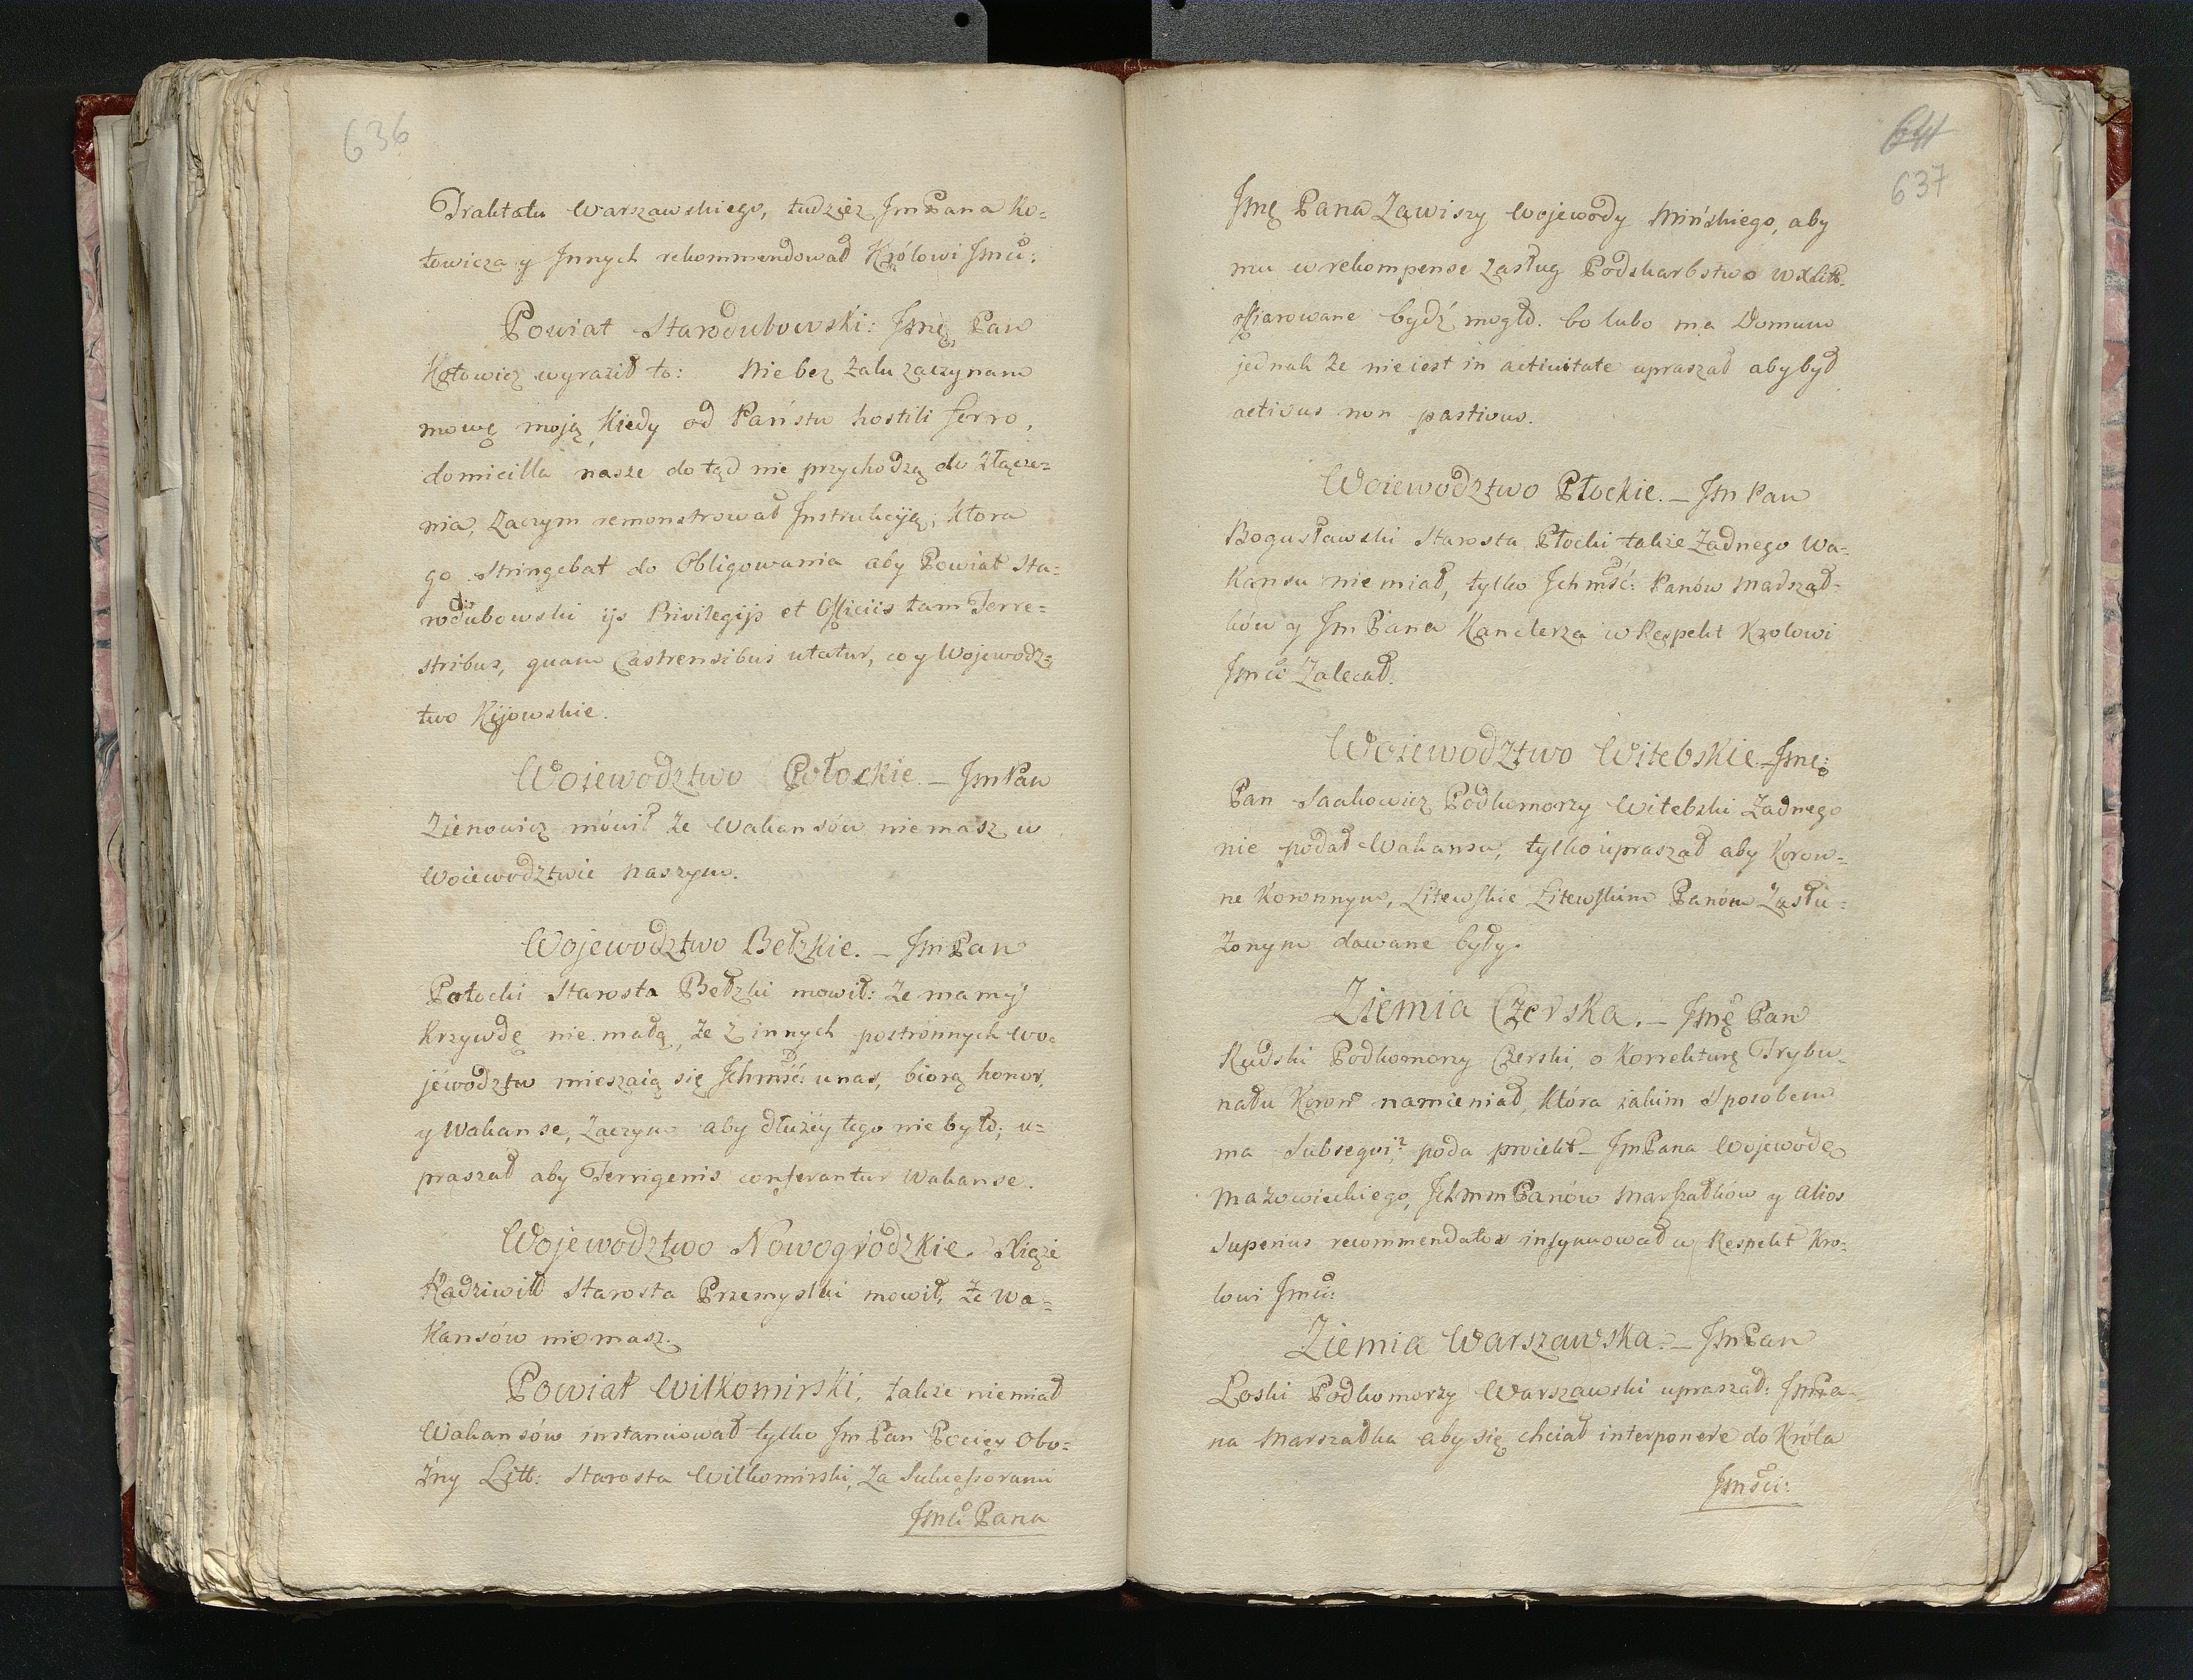 636
Traktatu Warszawskiego, tudzież JmPana Ko=
towicza y Innych rekommendował Królowi Jmci:
Powiat Starodubowski: Jmę Pan
Kotowicz wyraził to: Nie bez żalu zaczynam
mowę moją, Kiedy od Państw hostili ferro,
domicilla nasze do tąd nie przychodzą do złącze=
nia, Zaczym remonstrował Instrukcyją, ktora
go stringebat do Obligowania aby Powiat Sta=
rodubowski ijs Privilegijs et Officiis tam Terre=
stribus, quam Castrensibus utatur, co y Wojewodz=
two Kijowskie.
Wojewodztwo Połockie. – JmPan
Zienowicz mówił że Wakansów niemasz w
Woiewodztwie naszym.
Wojewodztwo Bełzkie. – JmPan
Potocki Starosta Bełzki mowił: że mamy
krzywdę nie małą, że z innych postronnych wo=
jewodztw mieszaią się Ichmść: unas, biorą honor,
y Wakanse, Zaczym aby dłużéy tego nie było; u=
praszał aby Terrigenis conferantur Wakanse.
Wojewodztwo Nowogrodzkie. Xiąże
Radziwiłł Starosta Przemyslki mowił, że Wa=
kansów niemasz.
Powiat Wiłkomirski, także niemiał
Wakansów instantiował tylko Jm Pan Pociey Obo=
źny Litt: Starosta Wilkomirski, Za Sukcessorami
Jmci Pana
641
637
Jmę Pana Zawiszy Wojewody Mińskiego, aby
mu w rekompense Zasług Podskarbstwo WXLitt.
ofiarowane bydź mogło. bo lubo ma Domum
jednak że nie iest in activitate upraszał aby był
activus non pastivus.
Woiewodztwo Płockie. – Jm Pan
Bogusławski Starosta Płocki także Żadnego Wa=
kansu nie miał, tylko Ichmść: Panów Marszał=
ków y JmPana Kanclerza w Respekt Krolowi
Jmci Zalecał.
Woiewodztwo Witebskie – Jmę:
Pan Saakowicz Podkomorzy Witebski Żadnego
nie podał Wakansu, tylko upraszał aby Koron=
ne Koronnym, Litewskie Litewskim Panóm Zasłu=
żonym dawane były.
Ziemia Czerska. – Jmę Pan
Rudski Podkomorzy Czerski, o Korrekturę Trybu=
nału Koron namieniał, która iakim sposobem
ma Subsequi? poda proiekt – JmPana Wojewodę
Mazowieckiego, IchmmPanów Marszałków y alios
Superius recommendatos insynuował w Respekt Kro=
lowi Jmci:
Ziemia Warszawska. – JmPan
Łoski Podkomorzy Warszawski upraszał: JmPa=
na Marszałka aby się chciał interponere do Króla
Jmści: